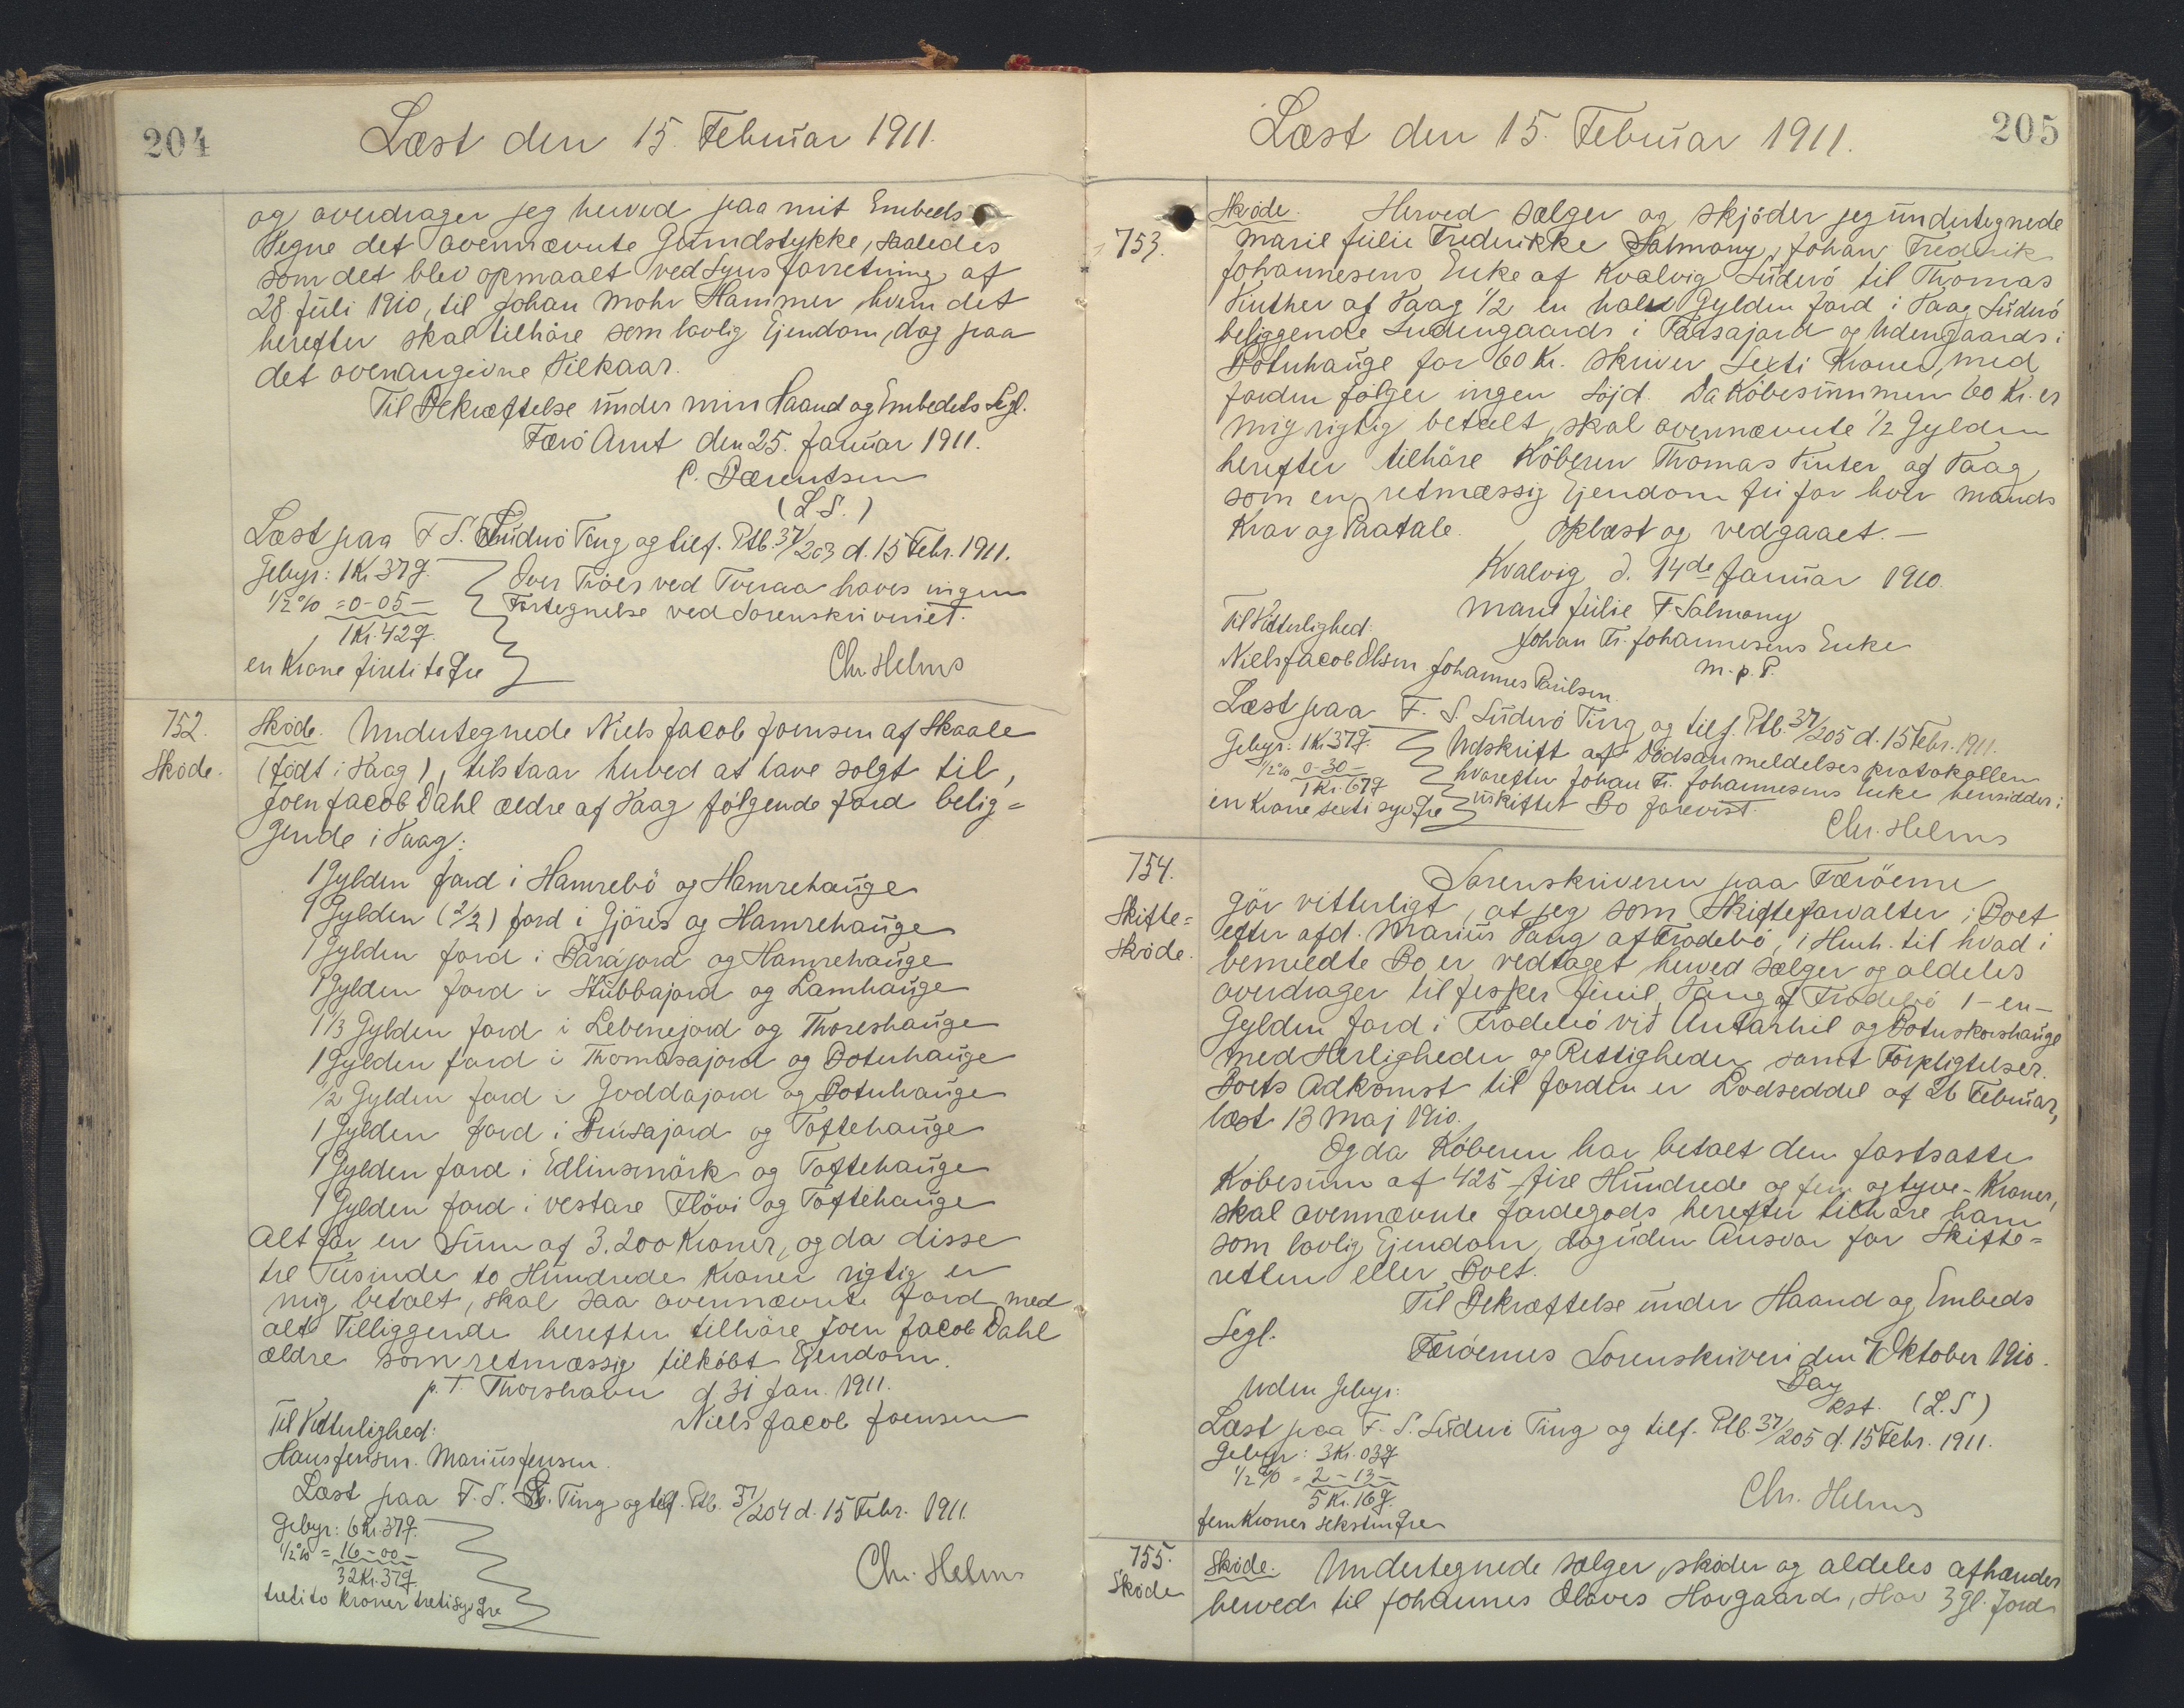 204
Læst den 15. Februar 1911.
og overdrager jeg herved paa mit Embeds
Vegne det ovennævnte Grundstykke, saaledes
som det blev opmaalt ved Synsforretning af
28 Juli 1910, til Johan Mohr Hammer hvem det
herefter skal tilhöre som lovlig Ejendom, dog paa
det ovenangivne Vilkaar.
Til Bekræftelse under min Haand og Embedets Segl.
Færö Amt den 25. Januar 1911.
C. Bærentsen
(L.S.)
Læst paa F. S. Suderö Ting og tilf. Ptb. 37/203 d. 15 Febr. 1911.
Gebyr: 1 Kr 37 Ø.
1/2 % = 0 - 05 -
1 Kr. 42 Ø.
en Krone fireti to Øre
Over Tröer ved Tveraa haves ingen
Fortegnelse ved Sorenskriveriet.
Chr. Helms
752.
Sköde.
Sköde. Undertegnede Niels Jacob Joensen af Skaale
(födt i Vaag), tilstaar herved at have solgt til,
Joen Jacob Dahl ældre af Vaag fölgende Jord belig=
gende i Vaag:
1 Gylden Jord i Hamrebö og Hamrehauge
1 Gylden (2/2) Jord i Gjöres og Hamrehauge
1 Gylden Jord i Bárájord og Hamrehauge
1 Gylden Jord i Stubbajord og Lamhauge
1 1/3 Gylden Jord i Lebenejord og Thoreshauge
1 Gylden Jord i Thomasajord og Botnhauge
1/2 Gylden Jord i Goddajord og Botnhauge
1 Gylden Jord i Prusajord og Toftehauge
1 Gylden Jord i Edlinsmörk og Toftehauge
1 Gylden Jord i vestare Flövi og Toftehauge
Alt for en Sum af 3.200 Kroner, og da disse
tre Tusinde to Hundrede Kroner rigtig er
mig betalt, skal saa ovennævnte Jord med
alt Tilliggende herefter tilhöre Joen Jacob Dahl
ældre som retmæssig tilköbt Ejendom.
p. T. Thorshavn d 31 Jan. 1911.
Niels Jacob Joensen
Til Vitterlighed:
Hans Jensen. Marius Jensen.
Læst paa F. S. S. Ting og tilf. Ptb. 37/204 d. 15 Febr. 1911.
Gebyr: 6 Kr. 37 Ø.
1/2 % = 16 - 00 -
32 Kr. 37 Ø.
treti to Kroner treti syv Øre
Chr. Helms
205
Læst den 15. Februar 1911.
753.
Sköde. Herved sælger og skjöder jeg undertegnede
Marie Julie Frederikke Salmony, Johan Fredrik
Johannesens Enke af Kvalvig Suderö til Thomas
Vinther af Vaag 1/2 en halv Gylden Jord i Vaag Suderö
beliggende Indengaards i Paasajord og Udengaards i
Botnhauge for 60 Kr. skriver Sexti Kroner, med
Jorden fölger ingen Löjd. Da Köbesummen 60 Kr. er
mig rigtig betalt, skal ovennævnte 1/2 Gylden
herefter tilhöre Köberen Thomas Vinter af Vaag
som en retmæssig Ejendom fri for hver Mands
Krav og Paatale. Oplæst og vedgaaet. -
Kvalvig d. 14de Januar 1910.
Marie Julie F. Salmony
Johan Fr. Johannesens Enke
m. p. P.
Til Vitterlighed:
Niels Jacob Olsen Johannes Poulsen
Læst paa F. S. Suderö Ting og tilf. Ptb. 37/205 d. 15 Febr. 1911.
Gebyr: 1 Kr 37 Ø.
1/2 % 0 - 30 -
1 Kr. 67 Ø
en Krone sexti syv Øre
Udskrift af Dödsanmeldelsesprotokollen
hvorefter Johan Fr. Johannesens Enke hensidder i
uskiftet Bo forevist.
Chr. Helms
754.
Skifte=
sköde.
Sorenskriveren paa Færöerne
Gör vitterligt, at jeg som Skifteforvalter i Boet
efter afd. Marius Vang af Frodebö, i Henh. til hvad i
bemeldte Bo er vedtaget herved sælger og aldeles
overdrager til fisker Emil Vang af Frodebö 1 - en -
Gylden Jord i Frodebö við Antarhil og Botnskorshauge
med Herligheder og Rettigheder samt Forpligtelser.
Boets Adkomst til Jorden er Lodseddel af 26 Februar,
læst 13 Maj 1910.
Og da Köberen har betalt den fastsatte
Köbesum af 425 - fire Hundrede og fem og tyve - Kroner,
skal ovennævnte Jordegods herefter tilhöre ham
som lovlig Ejendom, dog uden Ansvar for Skifte=
retten eller Boet.
Til Bekræftelse under Haand og Embeds
Segl.
Færöernes Sorenskriveri den 7 Oktober 1910.
Bay
kst. (L.S)
Uden Gebyr.
Læst paa F. S. Suderö Ting og tilf. Ptb. 37/205 d. 15 Febr. 1911.
Gebyr: 3 Kr. 03 Ø
1/2 % = 2 - 13 -
5 Kr. 16 Ø.
fem Kroner seksten Øre
Chr. Helms
755.
Sköde
Sköde. Undertegnede sælger, sköder og aldeles afhænder
herved til Johannes Olaves Hovgaard, Hov 3 Gl. Jord